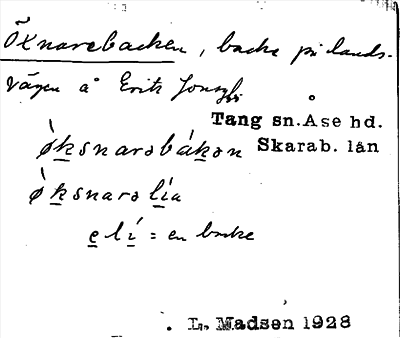 Öxnarebacken, backe på lands-
vägen å Erik Jons
Tang sn. Åse hd.
Skarab. län
ø̀ksnarəbákən
ø̀ksnarə lía
e lí = en backe
L. Madsen 1928